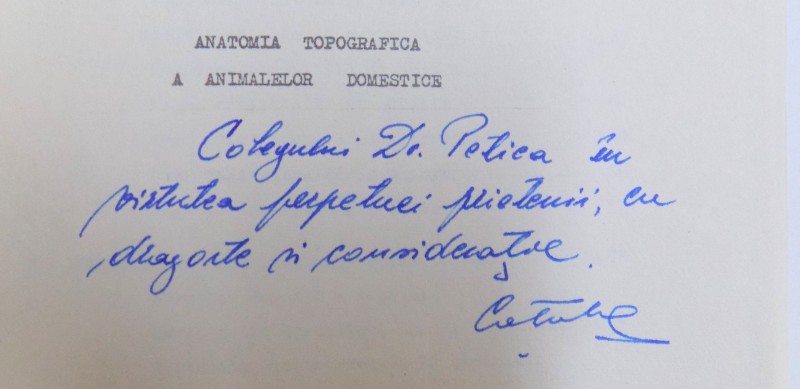 ANATOMIA TOPOGRAFICA
A ANIMALELOR DOMESTICE
Colegului Dr. Petica în
virtutea perpetuei prietenii, cu
dragoste si considerație.